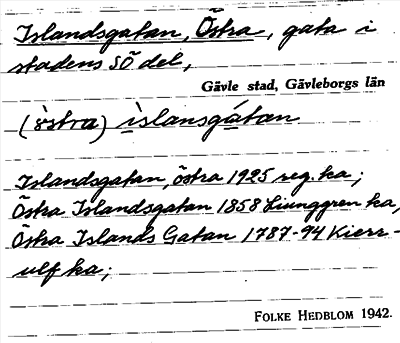 Islandsgatan, Östra, gata i
stadens SÖ del,
Gävle stad, Gävleborgs län
(östra) islansgátan
Islandsgatan, östra 1925 reg. ka;
Östra Islandsgatan 1858 Ljunggren ka,
Östra Islands Gatan 1787-94 Kierr-
ulf ka;
FOLKE HEDBLOM 1942.